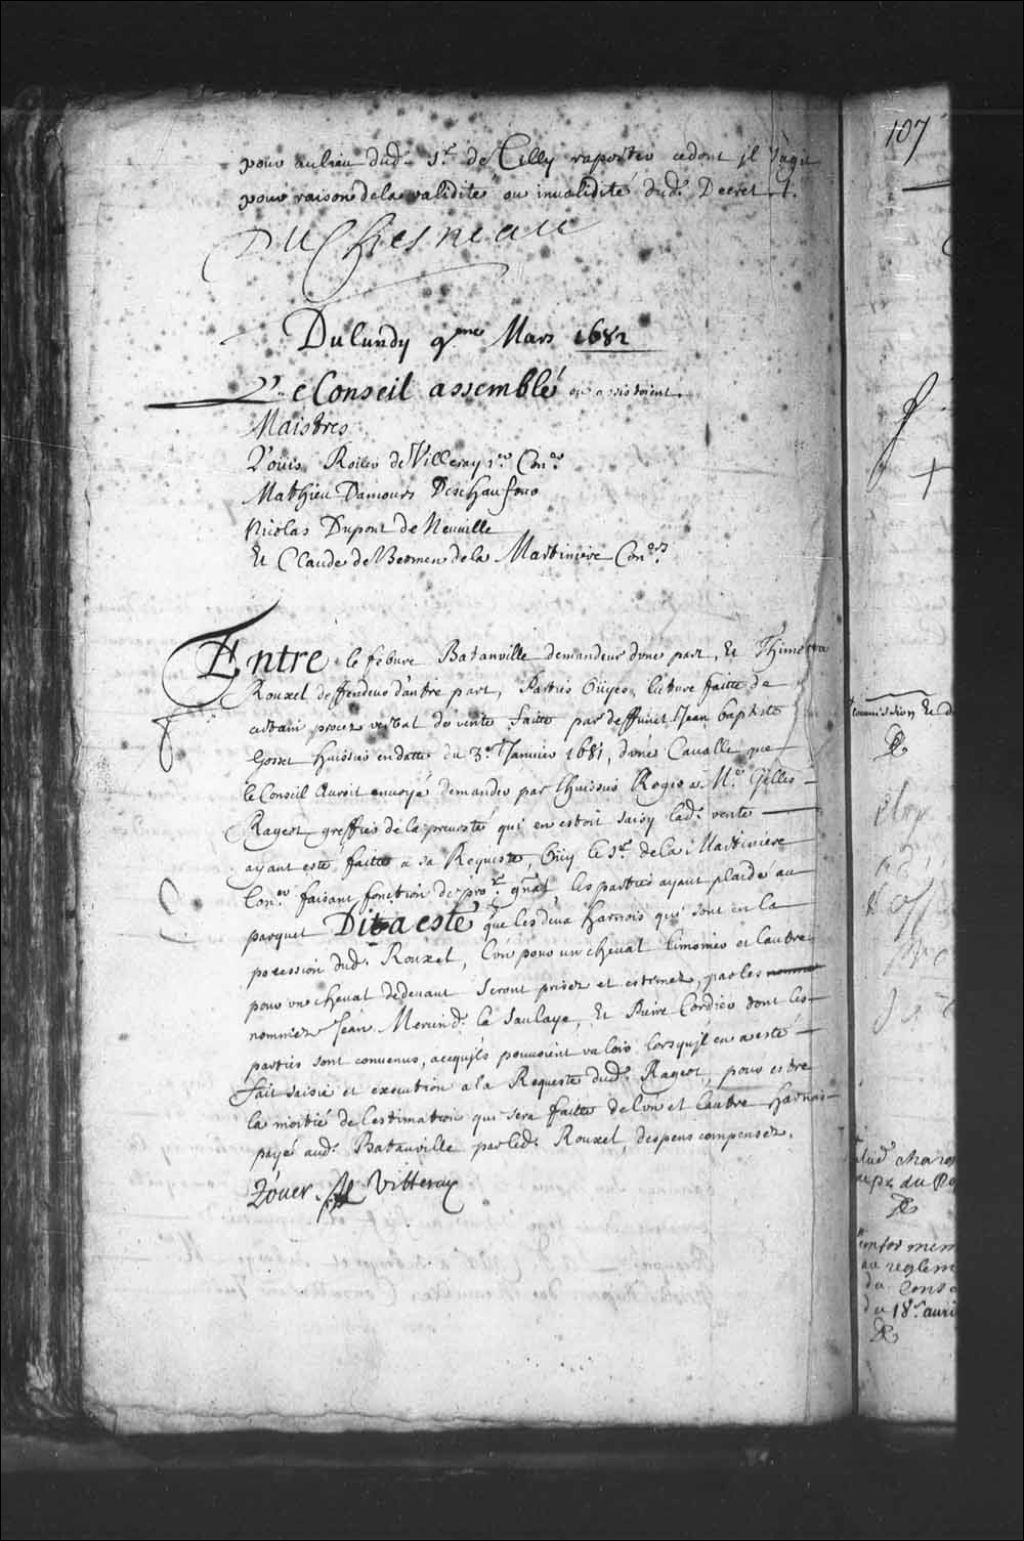 pour au lieu dud. Sr. de Tilly raporter cedont jl s'agit
pour raison dela validité ou invalidité dud. Decret ./.
DuChesneau
Du lundy 9me Mars 1682
Le Conseil assemblé ou assistoient
Maistres
Louis Roüer de Villeray 1er. Coner.
Mathieu Damours Deschaufour
Nicolas Dupont de Neuuille
Et Claude de Bermen dela Martiniere Coners.
Entre le febure Batanville demandeur dune part, Et Thimotée
Rouxel deffendeur dautre part, Parties Oüyes, lecture faitte de
certain procez verbal de vente faitte par deffunct Jean baptiste
Gosset huissier endatte du 3e. Janvier 1681, dune Cavalle que
le Conseil auroit enuoyé demander par lhuissier Roger a Me. Gilles
Rageot greffier de la preuosté qui en estoit saisy lad. vente
ayant esté faitte a sa Requeste, Oüy le Sr. dela Martiniere
Coner. faisant fonction de pror. gnal les parties ayant plaidé au
parquet Dit a esté que les deux harnois qui sont en la
possession dud. Rouxel, l'un pour un cheval limonier et lautre
pour un cheval dedeuant seront prisez et estimez, par les
nommez Jean Mercier d. le Saulaye, Et Pierre Cordier dont les
parties sont conuenus, acequils pouuoient valoir lorsquil en a esté
fait saisie et execution a la Requeste dud. Rageot, pour estre
la moitié de lestimation qui sera faitte de lun et lautre harnois
payé aud. Batanville par led. Rouxel, despens compensez.
Roüer de Villeray
107
commission Et d
dud
au pr. du Ro
conformem
au reglem
du Cons
du 18e. auri